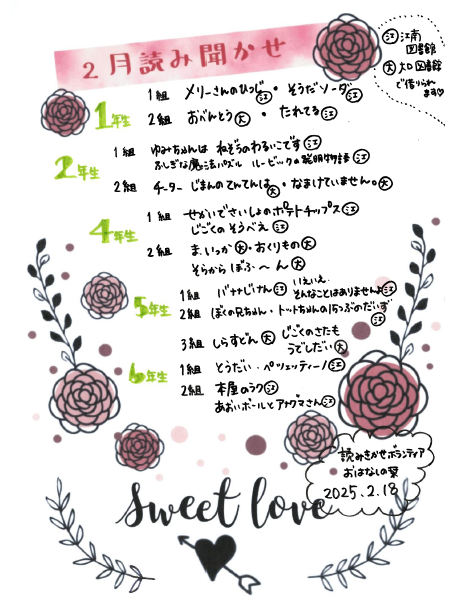 2月読み聞かせ
江 江南図書館
大 大口図書館
で借りられます♡
1年生
1組 メリーさんのひつじ 江・そうだソーダ 江
2組 おべんとう 大・たれてる 江
2年生
1組 ゆみちゃんは ねぞうのわるいこです 江
ふしぎな魔法パズル ルービックの発明物語 江
2組 チーター じまんのてんてんは 大・なまけていません。大
4年生
1組 せかいでさいしょのポテトチップス 江
じごくのそうべえ 江
2組 ま、いっか 大・おくりもの 大
そらからぼふ〜ん 大
5年生
1組 バナナじけん 江 いえいえ そんなことはありませんよ 江
2組 ぼくの兄ちゃん・トットちゃんの15つぶのだいず 江
3組 しらすどん 大 じごくのさたも うでしだい 大
6年生
1組 とうだい・ペツェッティーノ 江
2組 本屋のラク 江
あおいボールとアナグマさん 江
読みきかせボランティア
おはなしの葉
2025.2.18
sweet love